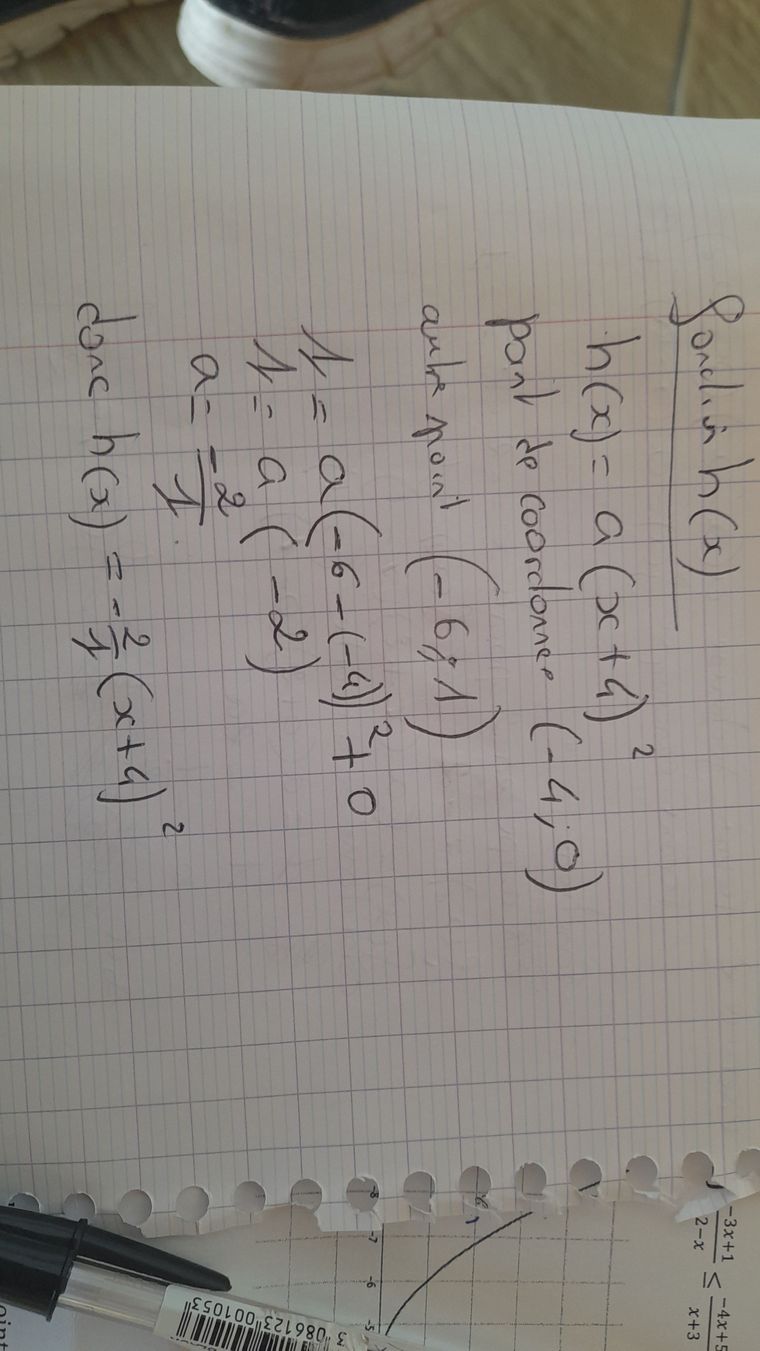 fonction h(x)
h(x) = a(x+4)²
point de coordonnée (-4;0)
autre point (-6;1)
1 = a(-6-(-4))² + 0
1 = a (-2)
a = -2/1.
donc h(x) = -2/1 (x+4)²
-3x+1/2-x ≤ -4x+5/x+3
-8 -7 -6 -5
3 086123 001053